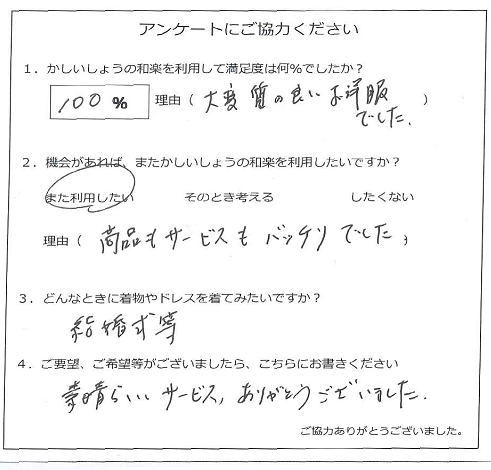 アンケートにご協力ください
1. かしいしょうの和楽を利用して満足度は何%でしたか?
100 % 理由( 大変質の良いお洋服 )
でした.
2. 機会があれば、またかしいしょうの和楽を利用したいですか?
また利用したい そのとき考える したくない
理由( 商品もサービスもバッチリでした )
3. どんなときに着物やドレスを着てみたいですか?
結婚式等
4. ご要望、ご希望等がございましたら、こちらにお書きください
素晴らしいサービス, ありがとうございました.
ご協力ありがとうございました。